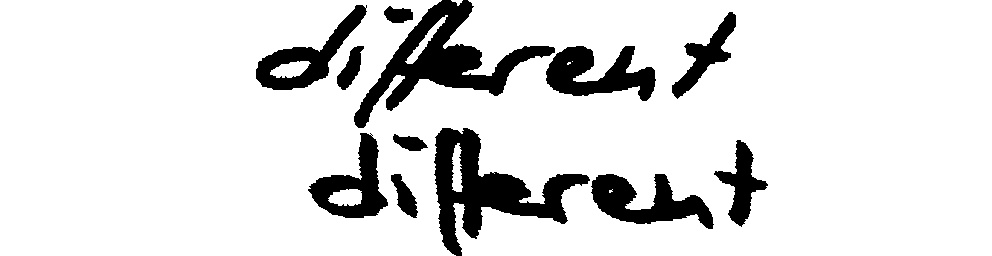 different
different